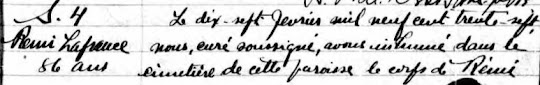 S. 4
Rémi Lafrance
86 ans
Le dix-sept février mil neuf cent trente-sept
nous, curé soussigné, avons inhumé dans le
cimetière de cette paroisse le corps de Rémi